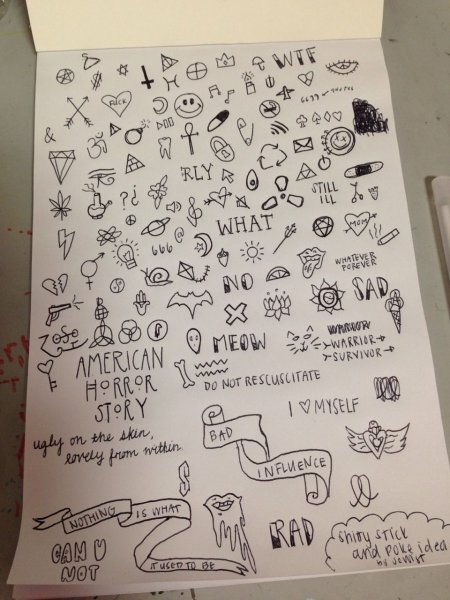 WTF
FUCK
&
RLY
STILL
ILL
?¿
WHAT
MOM
666
@
WHATEVER
FOREVER
NO
SAD
ZOSO
MEOW
WARRIOR
WARRIOR
SURVIVOR
AMERICAN
HORROR
STORY
DO NOT RESCUSCITATE
I ♡ MYSELF
ugly on the skin,
lovely from within
BAD
INFLUENCE
NOTHING IS WHAT
IT USED TO BE
CAN U
NOT
RAD
shitty stick
and poke idea